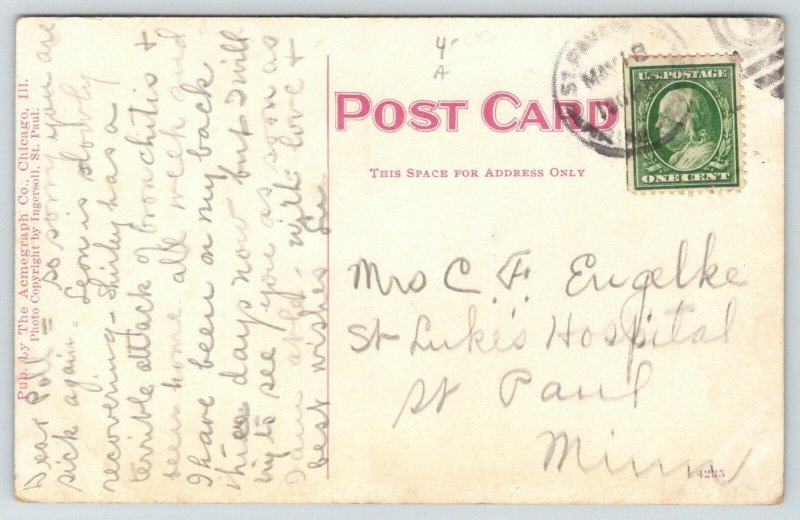 4
A
POST CARD
THIS SPACE FOR ADDRESS ONLY
ST. PAUL
MAY 18
MINN
U.S. POSTAGE
ONE CENT
Mrs C. F. Engelke
St Luke's Hospital
St Paul
Minn
4235
Pub. by The Acmegraph Co., Chicago, Ill.
Photo Copyright by Ingersoll, St. Paul.
Dear so sorry you are
sick again. Leon is slowly
recovering - Shirley has a
terrible attack of bronchitis &
been home all week and
I have been on my back
three days now but I will
try to see you as soon as
I am able - with love &
best wishes